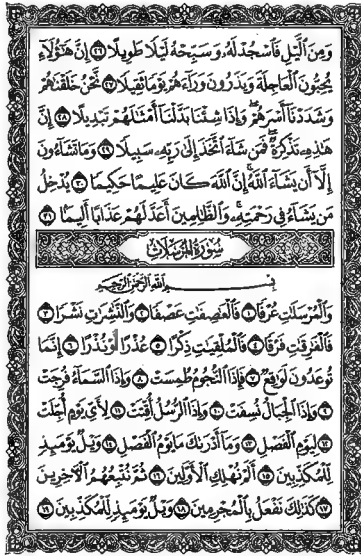 وَمِنَ ٱلَّيۡلِ فَٱسۡجُدۡ لَهُۥ وَسَبِّحۡهُ لَيۡلٗا طَوِيلًا ٢٦ إِنَّ هَٰٓؤُلَآءِ
يُحِبُّونَ ٱلۡعَاجِلَةَ وَيَذَرُونَ وَرَآءَهُمۡ يَوۡمٗا ثَقِيلٗا ٢٧ نَّحۡنُ خَلَقۡنَٰهُمۡ
وَشَدَدۡنَآ أَسۡرَهُمۡۖ وَإِذَا شِئۡنَا بَدَّلۡنَآ أَمۡثَٰلَهُمۡ تَبۡدِيلًا ٢٨ إِنَّ
هَٰذِهِۦ تَذۡكِرَةٞۖ فَمَن شَآءَ ٱتَّخَذَ إِلَىٰ رَبِّهِۦ سَبِيلٗا ٢٩ وَمَا تَشَآءُونَ
إِلَّآ أَن يَشَآءَ ٱللَّهُۚ إِنَّ ٱللَّهَ كَانَ عَلِيمًا حَكِيمٗا ٣٠ يُدۡخِلُ
مَن يَشَآءُ فِي رَحۡمَتِهِۦۚ وَٱلظَّٰلِمِينَ أَعَدَّ لَهُمۡ عَذَابًا أَلِيمَۢا ٣١
سُورَةُ المُرۡسَلَات
بِسۡمِ ٱللَّهِ ٱلرَّحۡمَٰنِ ٱلرَّحِيمِ
وَٱلۡمُرۡسَلَٰتِ عُرۡفٗا ١ فَٱلۡعَٰصِفَٰتِ عَصۡفٗا ٢ وَٱلنَّٰشِرَٰتِ نَشۡرٗا ٣
فَٱلۡفَٰرِقَٰتِ فَرۡقٗا ٤ فَٱلۡمُلۡقِيَٰتِ ذِكۡرًا ٥ عُذۡرًا أَوۡ نُذۡرًا ٦ إِنَّمَا
تُوعَدُونَ لَوَٰقِعٞ ٧ فَإِذَا ٱلنُّجُومُ طُمِسَتۡ ٨ وَإِذَا ٱلسَّمَآءُ فُرِجَتۡ
٩ وَإِذَا ٱلۡجِبَالُ نُسِفَتۡ ١٠ وَإِذَا ٱلرُّسُلُ أُقِّتَتۡ ١١ لِأَيِّ يَوۡمٍ أُجِّلَتۡ
١٢ لِيَوۡمِ ٱلۡفَصۡلِ ١٣ وَمَآ أَدۡرَىٰكَ مَا يَوۡمُ ٱلۡفَصۡلِ ١٤ وَيۡلٞ يَوۡمَئِذٖ
لِّلۡمُكَذِّبِينَ ١٥ أَلَمۡ نُهۡلِكِ ٱلۡأَوَّلِينَ ١٦ ثُمَّ نُتۡبِعُهُمُ ٱلۡأٓخِرِينَ
١٧ كَذَٰلِكَ نَفۡعَلُ بِٱلۡمُجۡرِمِينَ ١٨ وَيۡلٞ يَوۡمَئِذٖ لِّلۡمُكَذِّبِينَ ١٩